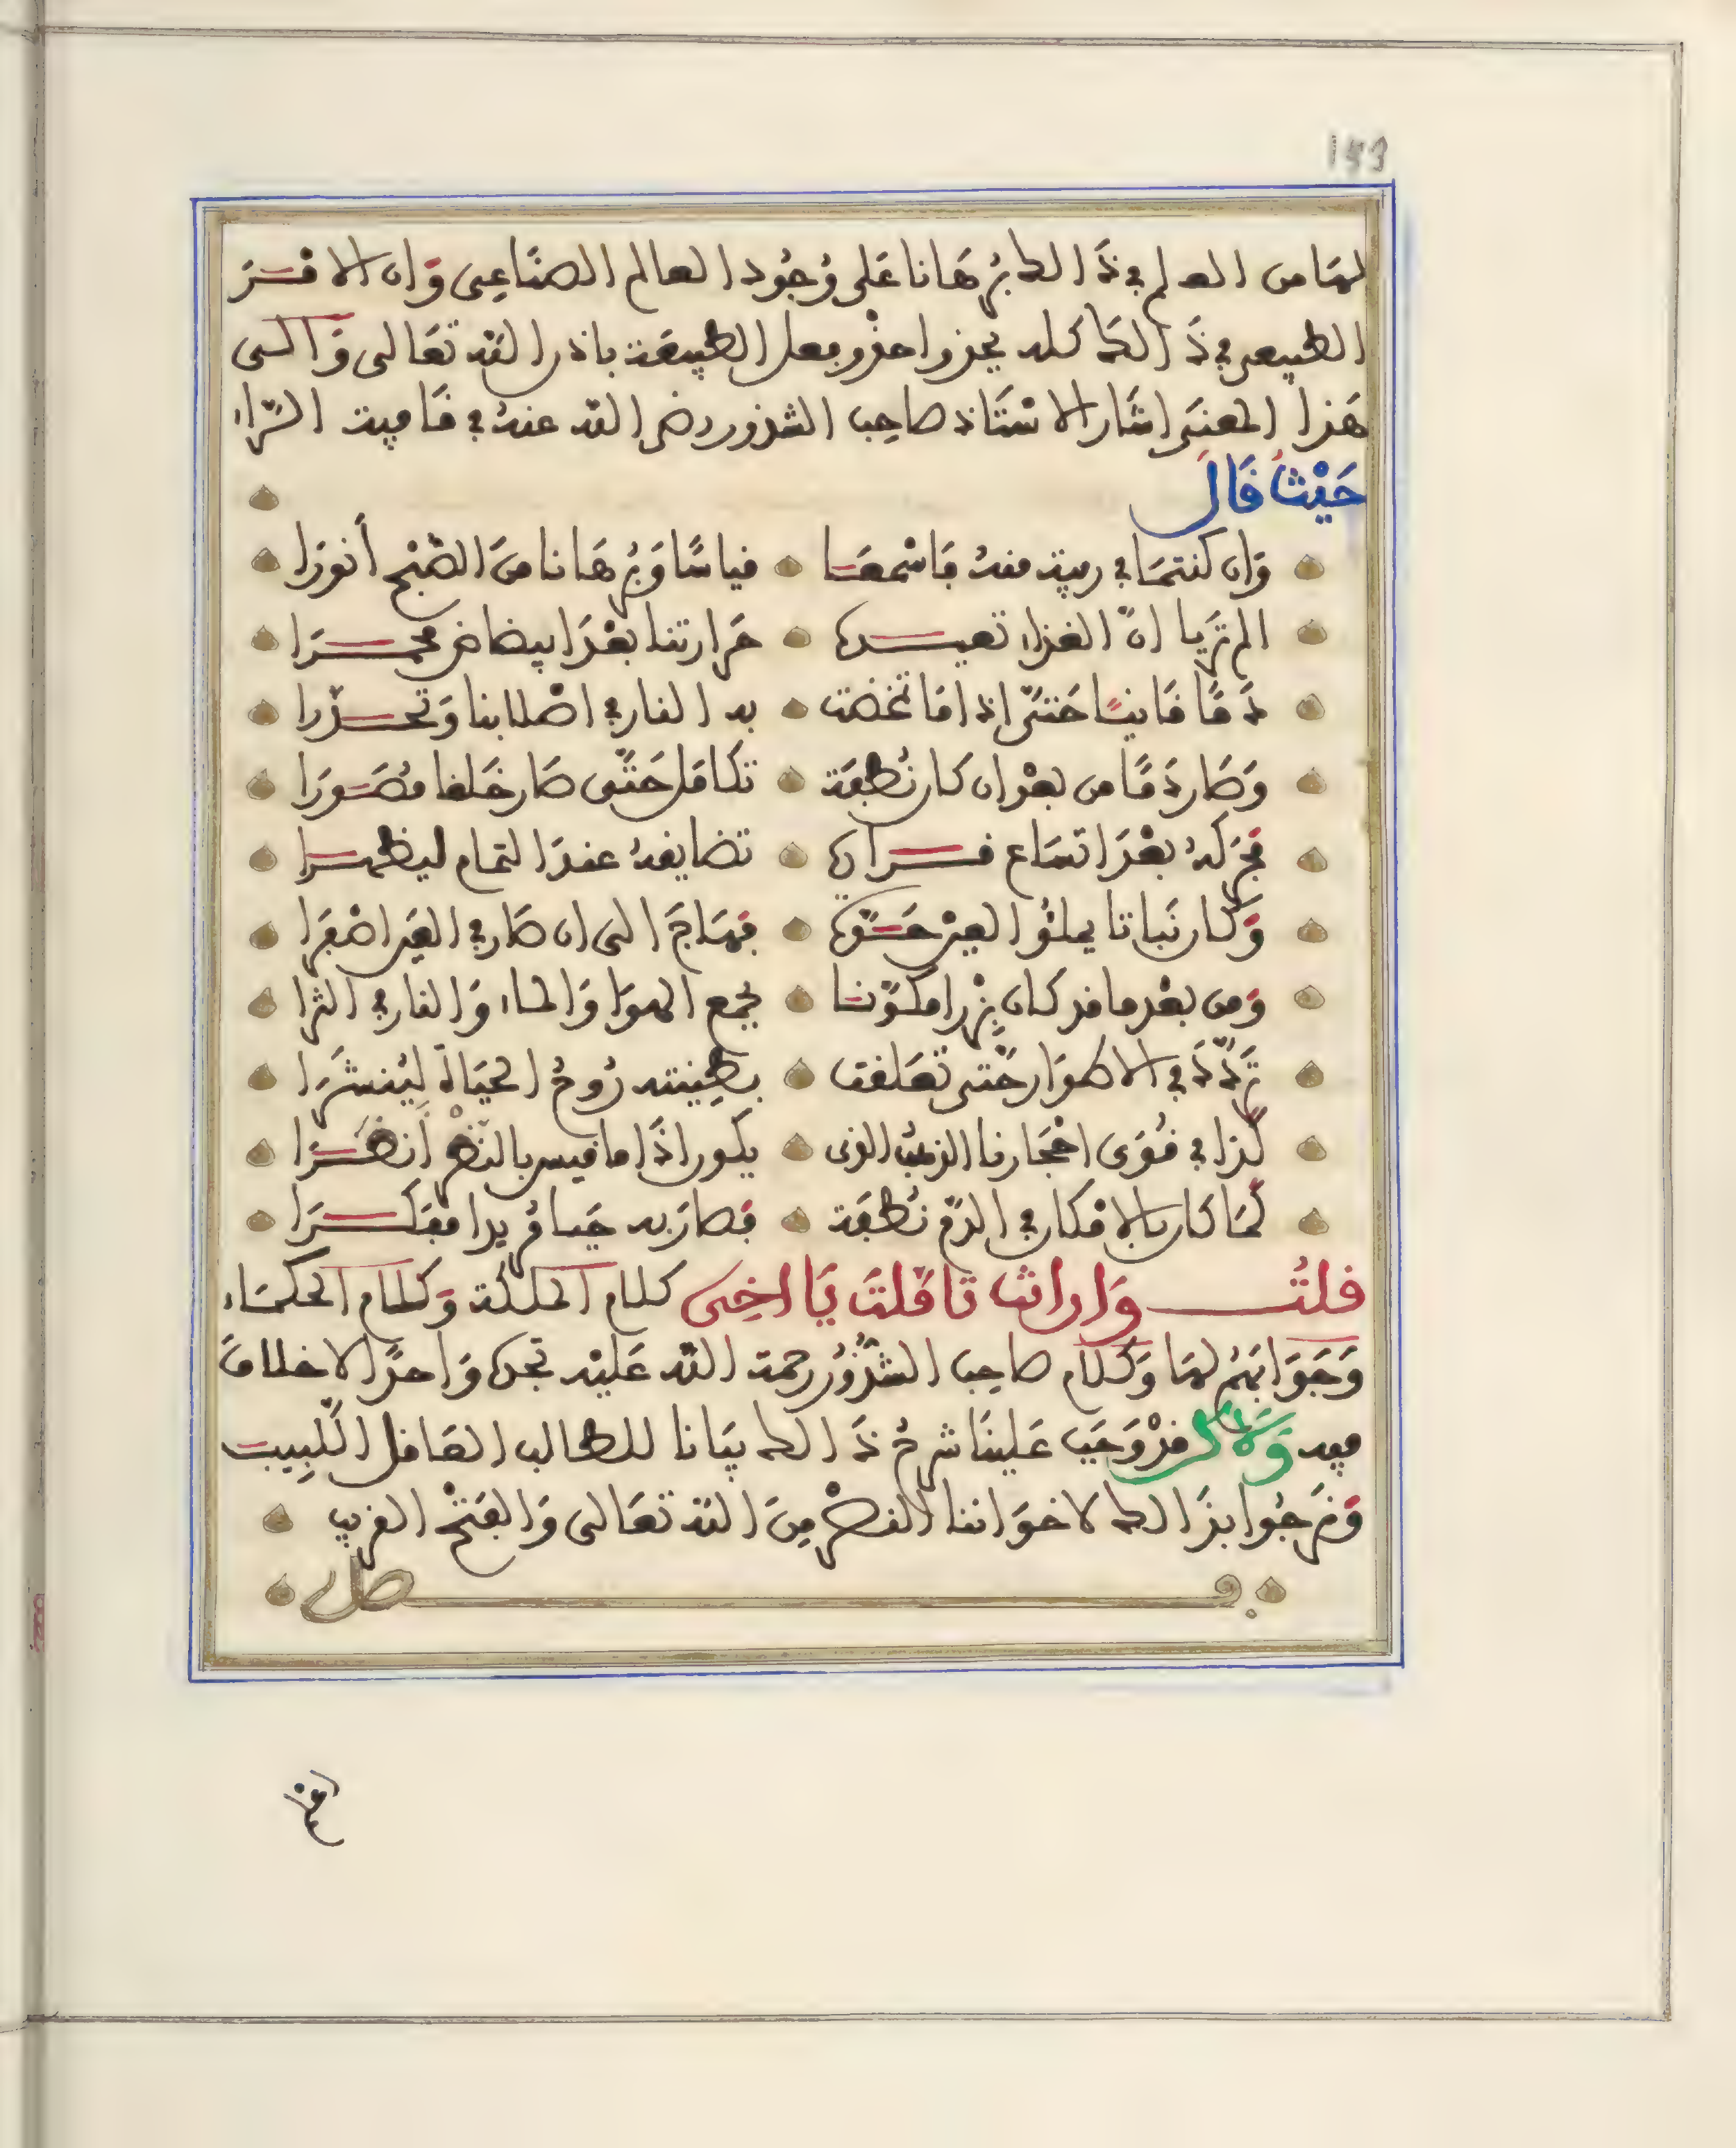 153
لهما من العلم في ذالك برهانا على وجود العالم الصناعي وان الامر
الطبيعي في ذالك كله يحذوا حذو فعل الطبيعة باذن الله تعالى والى
هذا المعنى اشار الاستاذ صاحب الشذور رضي الله عنه في قافية الراء
حيث قال
وان كنتما في رميه منه فاسمعا قياسا وبرهانا من الصبح أنورا
الم تريا ان الغذاء تعيده حرارتنا بعد ابيضاض محمرا
دما قانيا حتى اذا ما تمخضت به النار في اصلابنا وتحدرا
وصار دما من بعد ان كان نطفة تكامل حتى صار خلقا مصورا
فحركه بعد اتساع قراره تضايقه عند التمام ليظهرا
وكان نباتا يملؤ العين حسنه فهاج الى ان صار في العين اصفرا
ومن بعد ما قد كان بزرا مكونا بجمع الهوا والماء والنار في الثرا
تردد في الاطوار حتى تعلقت بطينته روح الحياة لينشرا
كذا في قوى احجارنا الذهب الذي يكون اذا ما قيس بالنضر أنضرا
كما كان بالامكان في الدم نطفة فصار به حيا مريدا مفكرا
قلت وان انت تاملت يا اخي كلام الملكة وكلام الحكماء
وجوابهم لها وكلام صاحب الشذور رحمة الله عليه تجده واحدا لا خلاف
فيه ولاكن قد وجب علينا شرح ذالك بيانا للطالب العاقل اللبيب
ونرجوا بذالك لاخواننا النصر من الله تعالى والفتح القريب
فصل